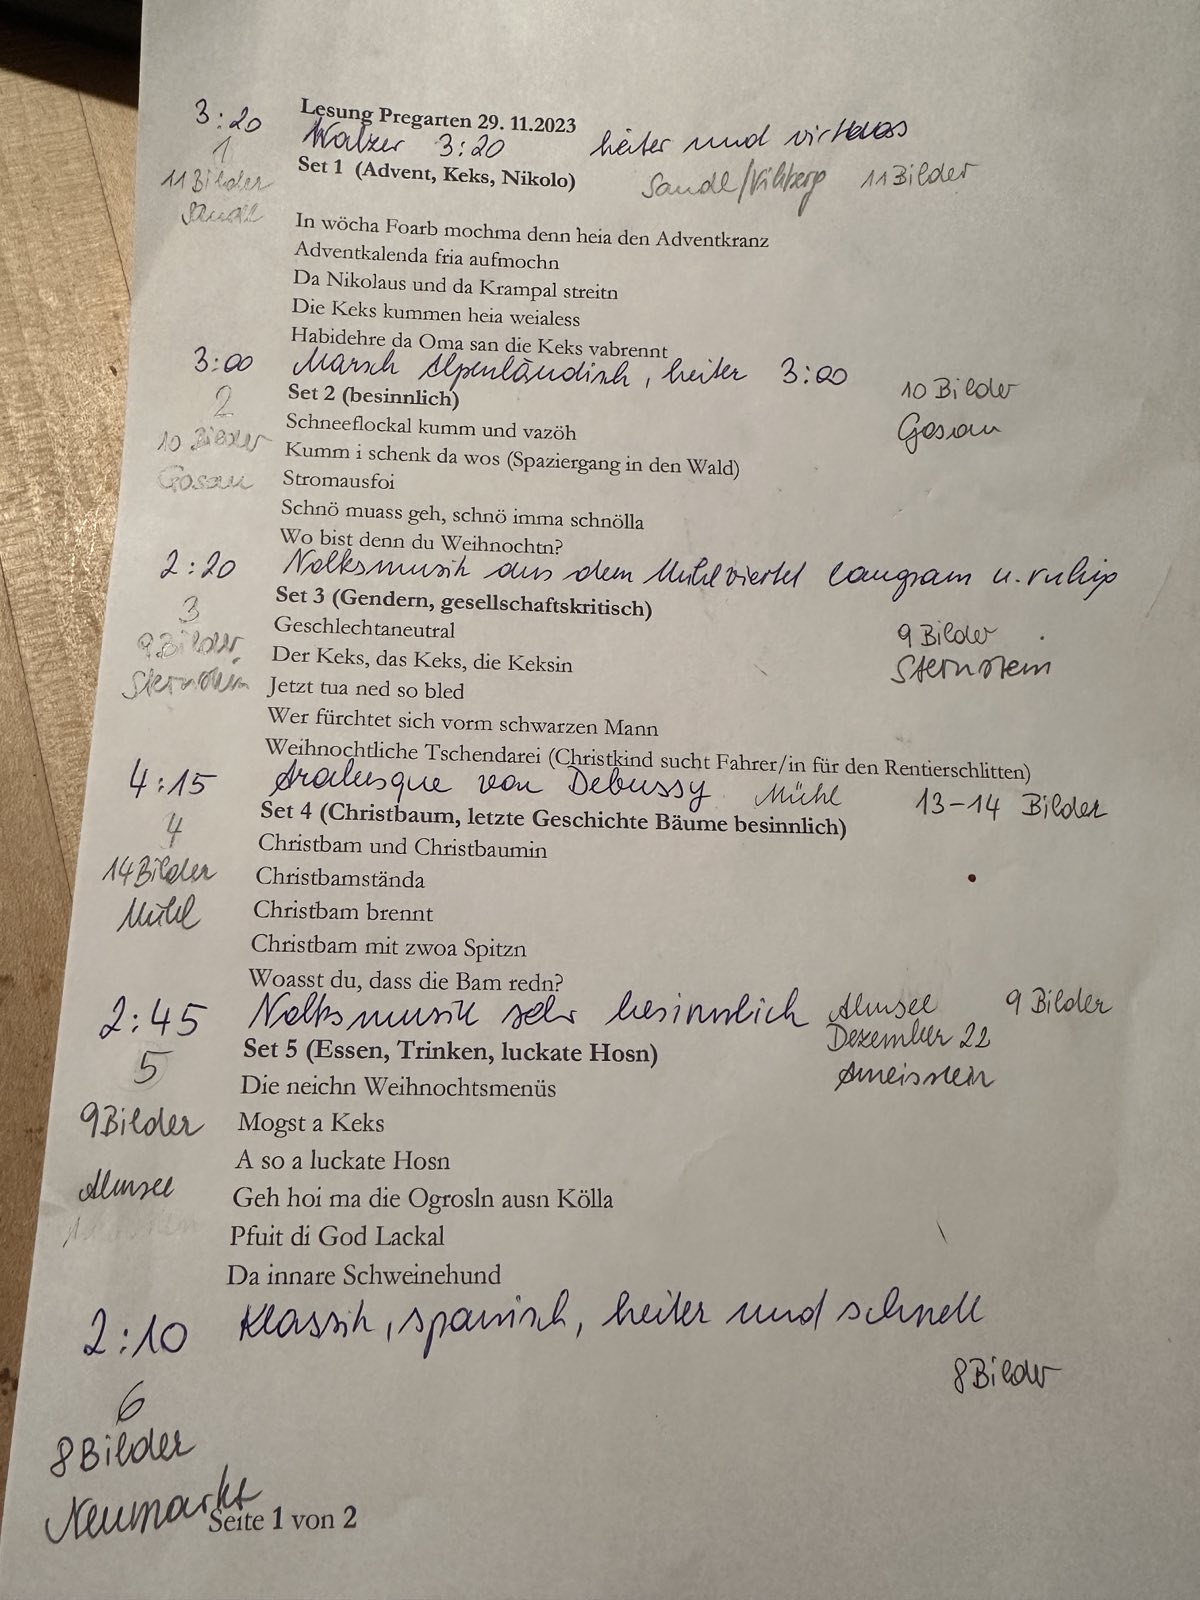 Lesung Pregarten 29. 11.2023
3:20 Walzer 3:20 heiter und virtuos
1 Set 1 (Advent, Keks, Nikolo) Sandl/Viehberg 11 Bilder
11 Bilder
Sandl
In wöcha Foarb mochma denn heia den Adventkranz
Adventkalenda fria aufmochn
Da Nikolaus und da Krampal streitn
Die Keks kummen heia weialess
Habidehre da Oma san die Keks vabrennt
3:00 Marsch Alpenländisch, heiter 3:00
2 Set 2 (besinnlich) 10 Bilder
10 Bilder Schneeflockal kumm und vazöh Gosau
Kumm i schenk da wos (Spaziergang in den Wald)
Gosau Stromausfoi
Schnö muass geh, schnö imma schnölla
Wo bist denn du Weihnochtn?
2:20 Volksmusik aus dem Mühlviertel langsam u. ruhig
3 Set 3 (Gendern, gesellschaftskritisch)
9 Bilder Geschlechtaneutral 9 Bilder
Der Keks, das Keks, die Keksin Sternstein
Sternstein Jetzt tua ned so bled
Wer fürchtet sich vorm schwarzen Mann
Weihnochtliche Tschendarei (Christkind sucht Fahrer/in für den Rentierschlitten)
4:15 Arabesque von Debussy Mühl 13-14 Bilder
4 Set 4 (Christbaum, letzte Geschichte Bäume besinnlich)
Christbam und Christbaumin
14 Bilder Christbamstända
Mühl Christbam brennt
Christbam mit zwoa Spitzn
Woasst du, dass die Bam redn?
2:45 Volksmusik sehr besinnlich Almsee 9 Bilder
Dezember 22
5 Set 5 (Essen, Trinken, luckate Hosn)
Die neichn Weihnochtsmenüs Ameisstein
9 Bilder Mogst a Keks
A so a luckate Hosn
Almsee Geh hoi ma die Ogrosln ausn Kölla
Pfuit di God Lackal
Da innare Schweinehund
2:10 Klassik, spanisch, heiter und schnell
8 Bilder
6
8 Bilder
Neumarkt
Seite 1 von 2